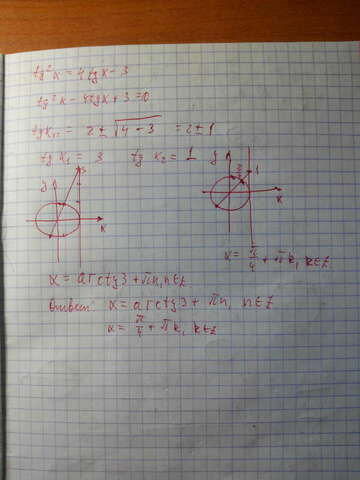 tg²x = 4tgx - 3
tg²x - 4tgx + 3 = 0
tgx₁,₂ = 2 ± √4 - 3 = 2 ± 1
tg x₁ = 3 tg x₂ = 1
y 3 x
y π/4 1 x
x = π/4 + πk, k∈Z
x = arctg3 + πn, n∈Z
Ответ: x = arctg3 + πn, n∈Z
x = π/4 + πk, k∈Z